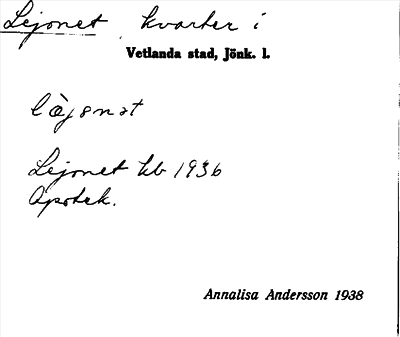 Lejonet, kvarter i
Vetlanda stad, Jönk. l.
Lejonet kb 1936
Apotek.
Annalisa Andersson 1938